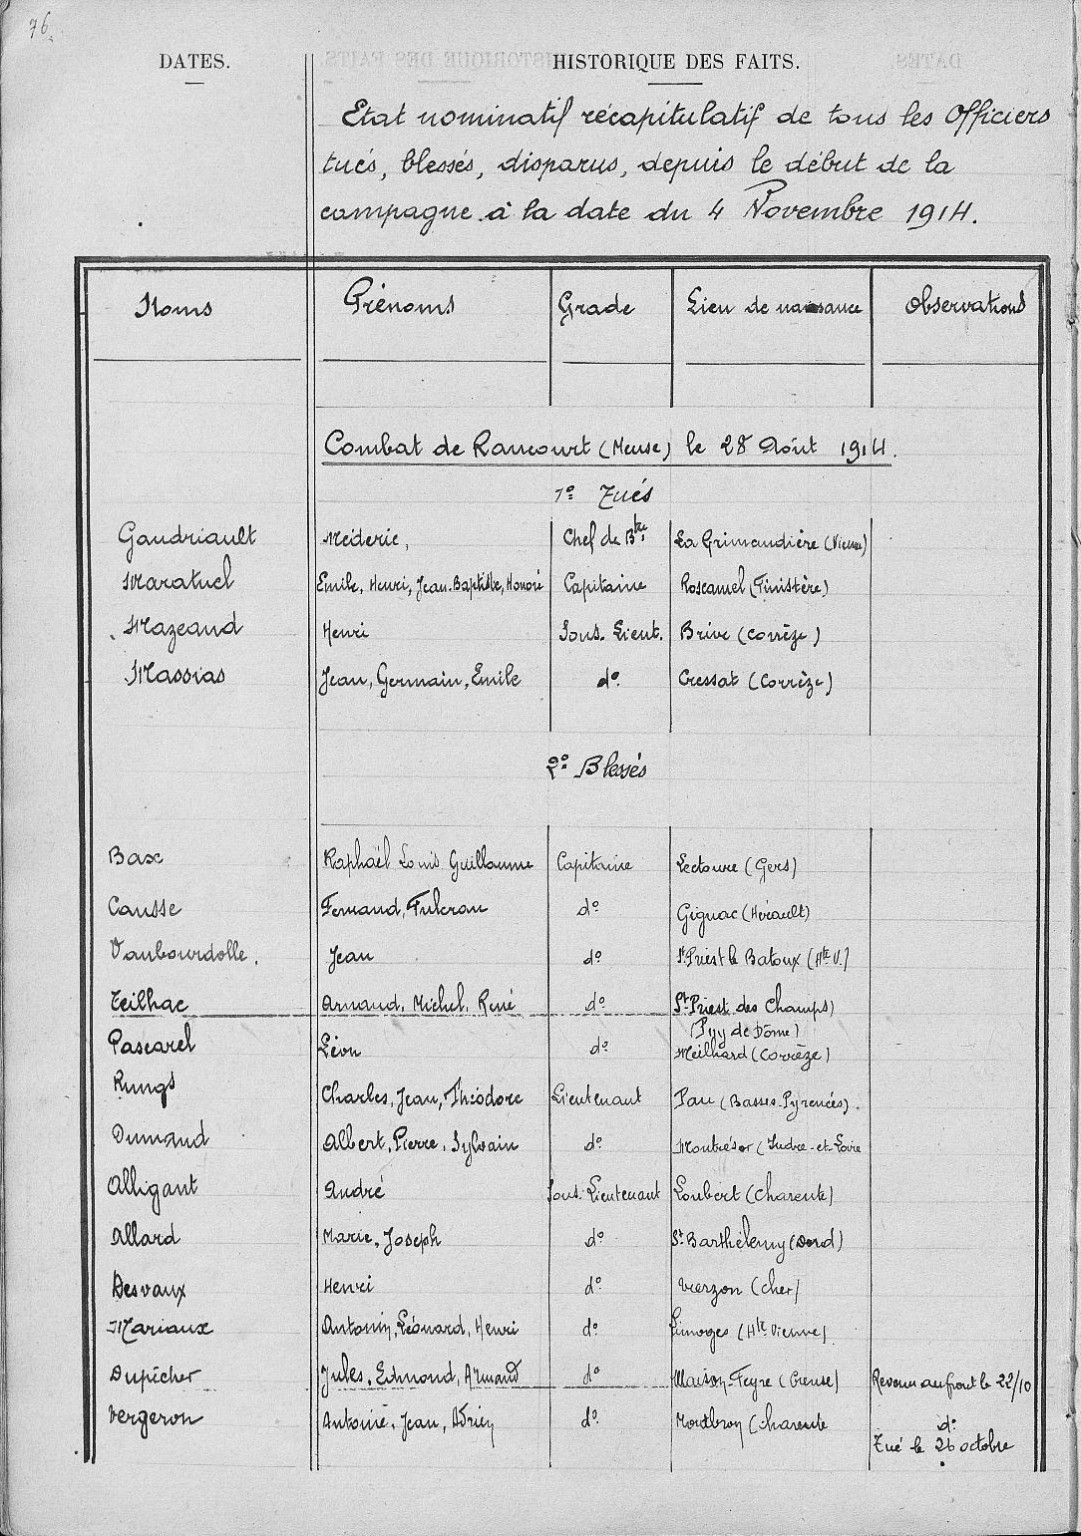 76.
DATES. HISTORIQUE DES FAITS.
Etat nominatif récapitulatif de tous les Officiers
tués, blessés, disparus, depuis le début de la
campagne à la date du 4 Novembre 1914.
Noms Prénoms Grade Lieu de naissance Observations
Combat de Raucourt (Meuse) le 28 Août 1914.
1º Tués
Gaudriault Méderic, Chef de Bton La Grimaudière (Vienne)
Maratuel Emile, Henri, Jean-Baptiste, Honoré Capitaine Roscanvel (Finistère)
Mazeaud Henri Sous. Lieut. Brive (Corrèze)
Massias Jean, Germain, Emile dº Cressat (Corrèze)
2º Blessés
Bax Raphaël Louis Guillaume Capitaine Lectoure (Gers)
Causse Fernand, Fulcran dº Gignac (Hérault)
Vaubourdolle. Jean dº St Priest le Batoux (Hte V.)
Teilhac Arnaud, Michel, René dº St Priest des Champs)
(Puy de Dôme)
Pascarel Léon dº Meilhard (Corrèze)
Rungs Charles, Jean, Théodore Lieutenant Pau (Basses-Pyrénées).
Dumand Albert, Pierre, Sylvain dº Montrésor (Indre-et-Loire
Alligant André Sous-Lieutenant Loubert (Charente)
Allard Marie, Joseph dº St Barthélemy (Dord)
Desvaux Henri dº Vierzon (Cher)
Mariaux Antonin, Léonard, Henri dº Limoges (Hte Vienne)
Dupicher Jules, Edmond, Armand dº Maison-Feyre (Creuse) Revenu au front le 22/10
Vergeron Antoine, Jean, Adrien dº Montbron (Charente dº
Tué le 26 octobre